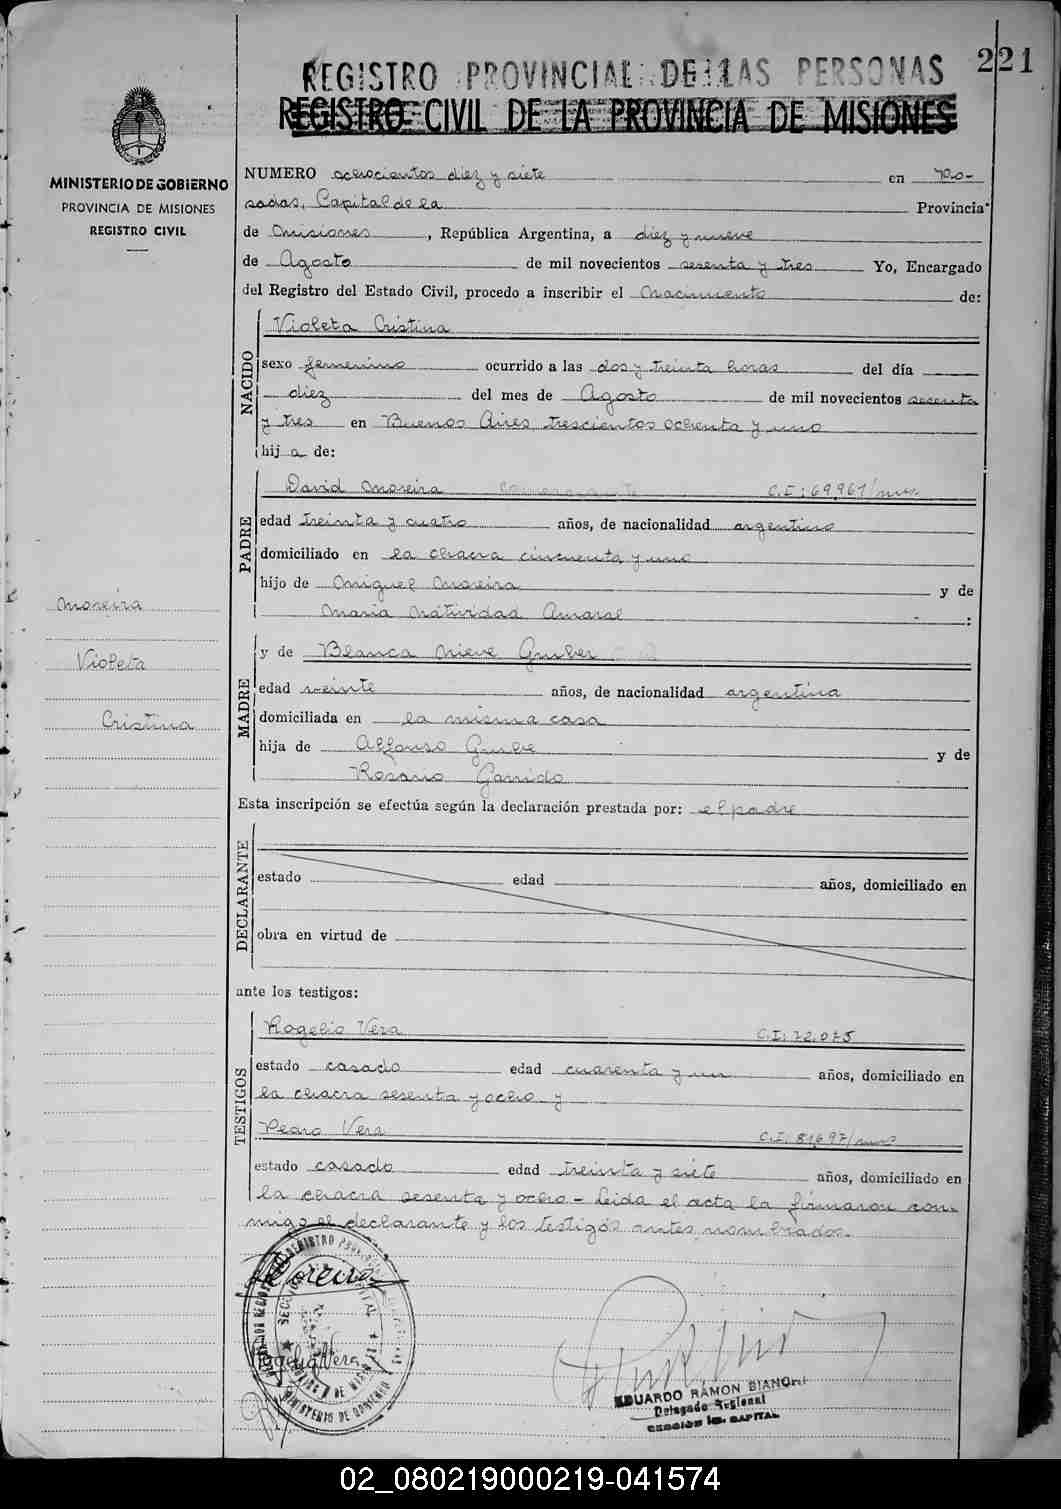 221
REGISTRO PROVINCIAL DE LAS PERSONAS
REGISTRO CIVIL DE LA PROVINCIA DE MISIONES
MINISTERIO DE GOBIERNO
PROVINCIA DE MISIONES
REGISTRO CIVIL
NUMERO ochocientos diez y siete en Po-
sadas, Capital de la Provincia
de Misiones, República Argentina, a diez y nueve
de Agosto de mil novecientos sesenta y tres Yo, Encargado
del Registro del Estado Civil, procedo a inscribir el Nacimiento de:
NACIDO
Violeta Cristina
sexo femenino ocurrido a las dos y treinta horas del día
diez del mes de Agosto de mil novecientos sesenta
y tres en Buenos Aires, trescientos ochenta y uno
hij a de:
PADRE
David Moreira comerciante C.I: 69,967/mnes.
edad treinta y cuatro años, de nacionalidad argentino
domiciliado en la chacra cincuenta y uno
hijo de Miguel Moreira y de
Maria Natividad Amaral :
Moreira
Violeta
Cristina
MADRE
y de Blanca Nieve Gruber
edad veinte años, de nacionalidad argentina
domiciliada en la misma casa
hija de Alfonso y de
Rosario Garrido
Esta inscripción se efectúa según la declaración prestada por: el padre
DECLARANTE
estado edad años, domiciliado en
obra en virtud de
ante los testigos:
TESTIGOS
Rogelio Vera C.I: 72.075
estado casado edad cuarenta y un años, domiciliado en
la chacra sesenta y ocho y
Pedro Vera C.I. 81697/mnes
estado casado edad treinta y siete años, domiciliado en
la chacra sesenta y ocho - Leida el acta la firmaron con-
migo el declarante y los testigos antes nombrados.
Moreira
Rogelio Vera
MINISTERIO DE GOBIERNO
EDUARDO RAMON BIANCHI
Delegado Regional
SECCION 1a. CAPITAL
02_080219000219-041574